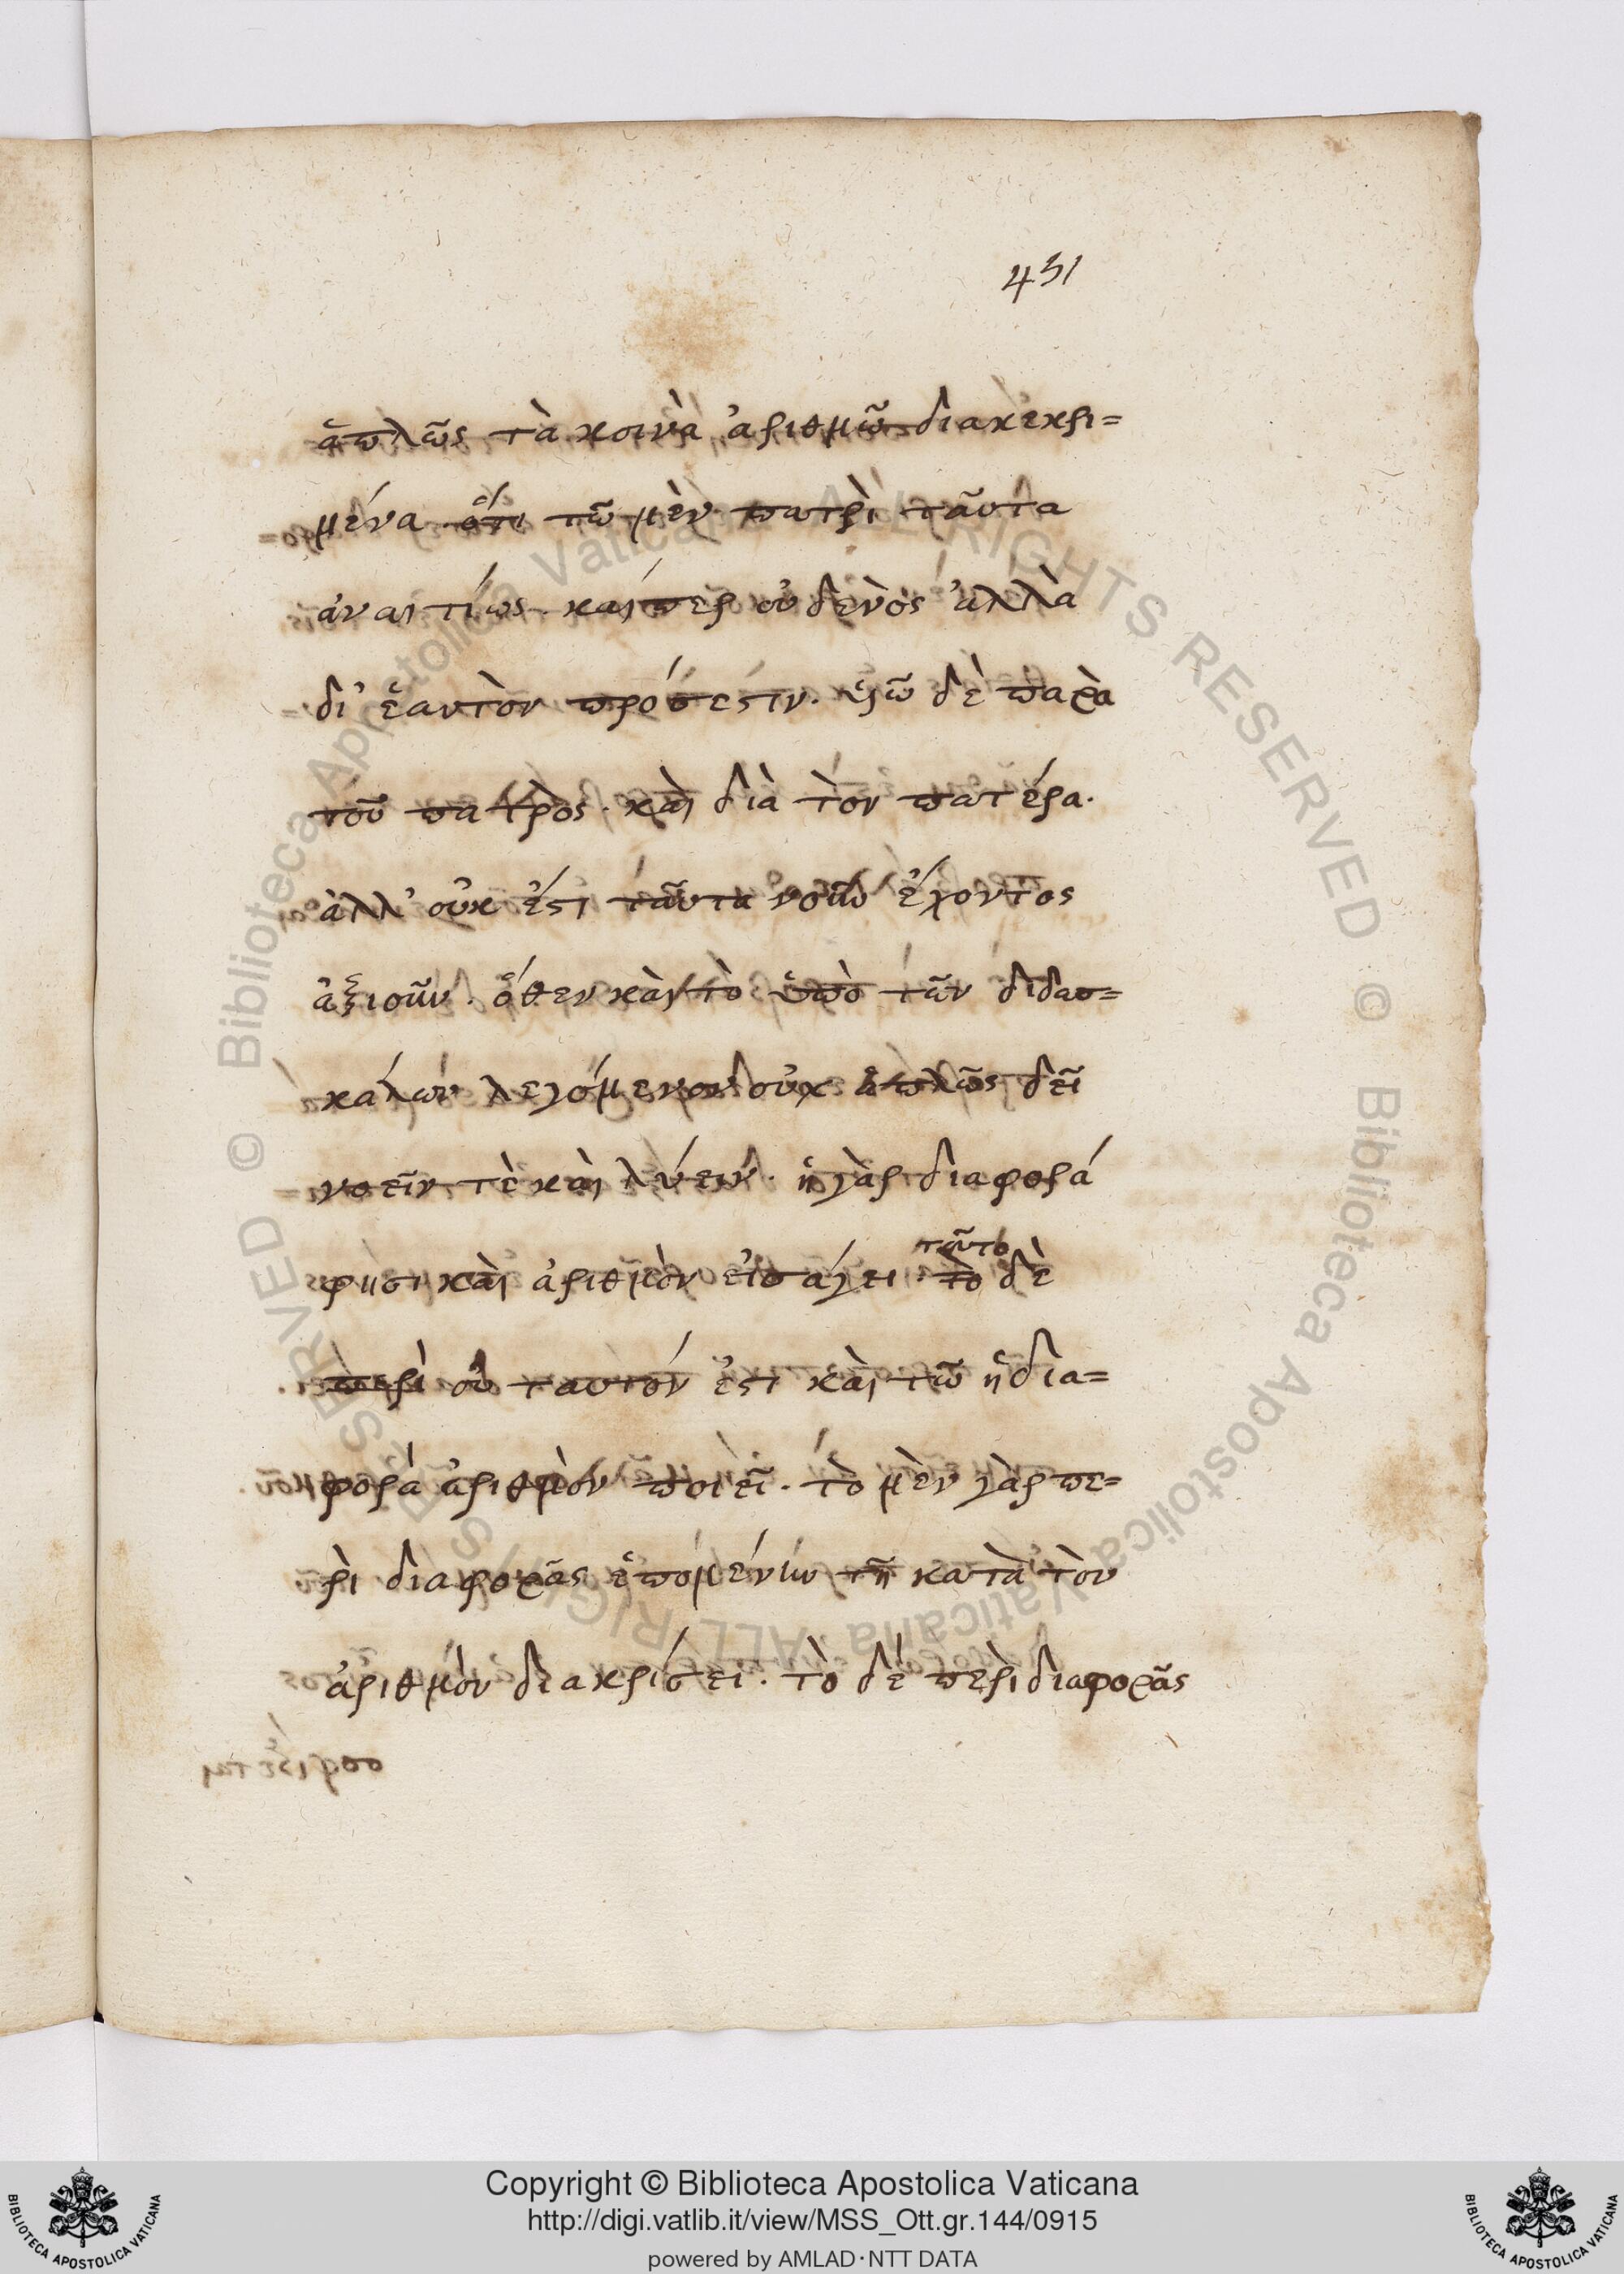 431
ἁπλῶς τὰ κοινὰ ἀριθμῶ διακεκρι=
μένα. ὅτι τῶ μὲν πατρὶ ταῦτα
ἀναιτίως. καίπερ οὐδενὸς ἀλλὰ
δι' ἑαυτὸν πρόσεστιν. ὑιῶ δὲ παρὰ
τοῦ πατρὸς. καὶ διὰ τὸν πατέρα.
ἀλλ' οὐκ ἔστι ταῦτα νοῦν ἔχοντος
ἀξιοῦν. ὅθεν καὶ τὸ ὑπὸ τῶν διδασ=
κάλων λεγόμενον οὐχ ἁπλῶς δεῖ
νοεῖν τὲ καὶ λύειν. ἡ γὰρ διαφορά
φησι καὶ ἀριθμὸν εἰσάγει. τὸ δὲ
τοῦτο
περὶ οὐ ταυτόν ἐστι καὶ τῶ ἡ δια=
φορὰ ἀριθμὸν ποιεῖ. τὸ μὲν γὰρ πε=
ρὶ διαφορᾶς ἑπομένην τῆ κατὰ τὸν
ἀριθμὸν διακρίσει. τὸ δὲ περὶ διαφορᾶς
Copyright © Biblioteca Apostolica Vaticana
http://digi.vatlib.it/view/MSS_Ott.gr.144/0915
powered by AMLAD·NTT DATA
BIBLIOTECA APOSTOLICA VATICANA
BIBLIOTECA APOSTOLICA VATICANA
© Biblioteca Apostolica Vaticana ALL RIGHTS RESERVED © Biblioteca Apostolica Vaticana ALL RIGHTS RESERVED